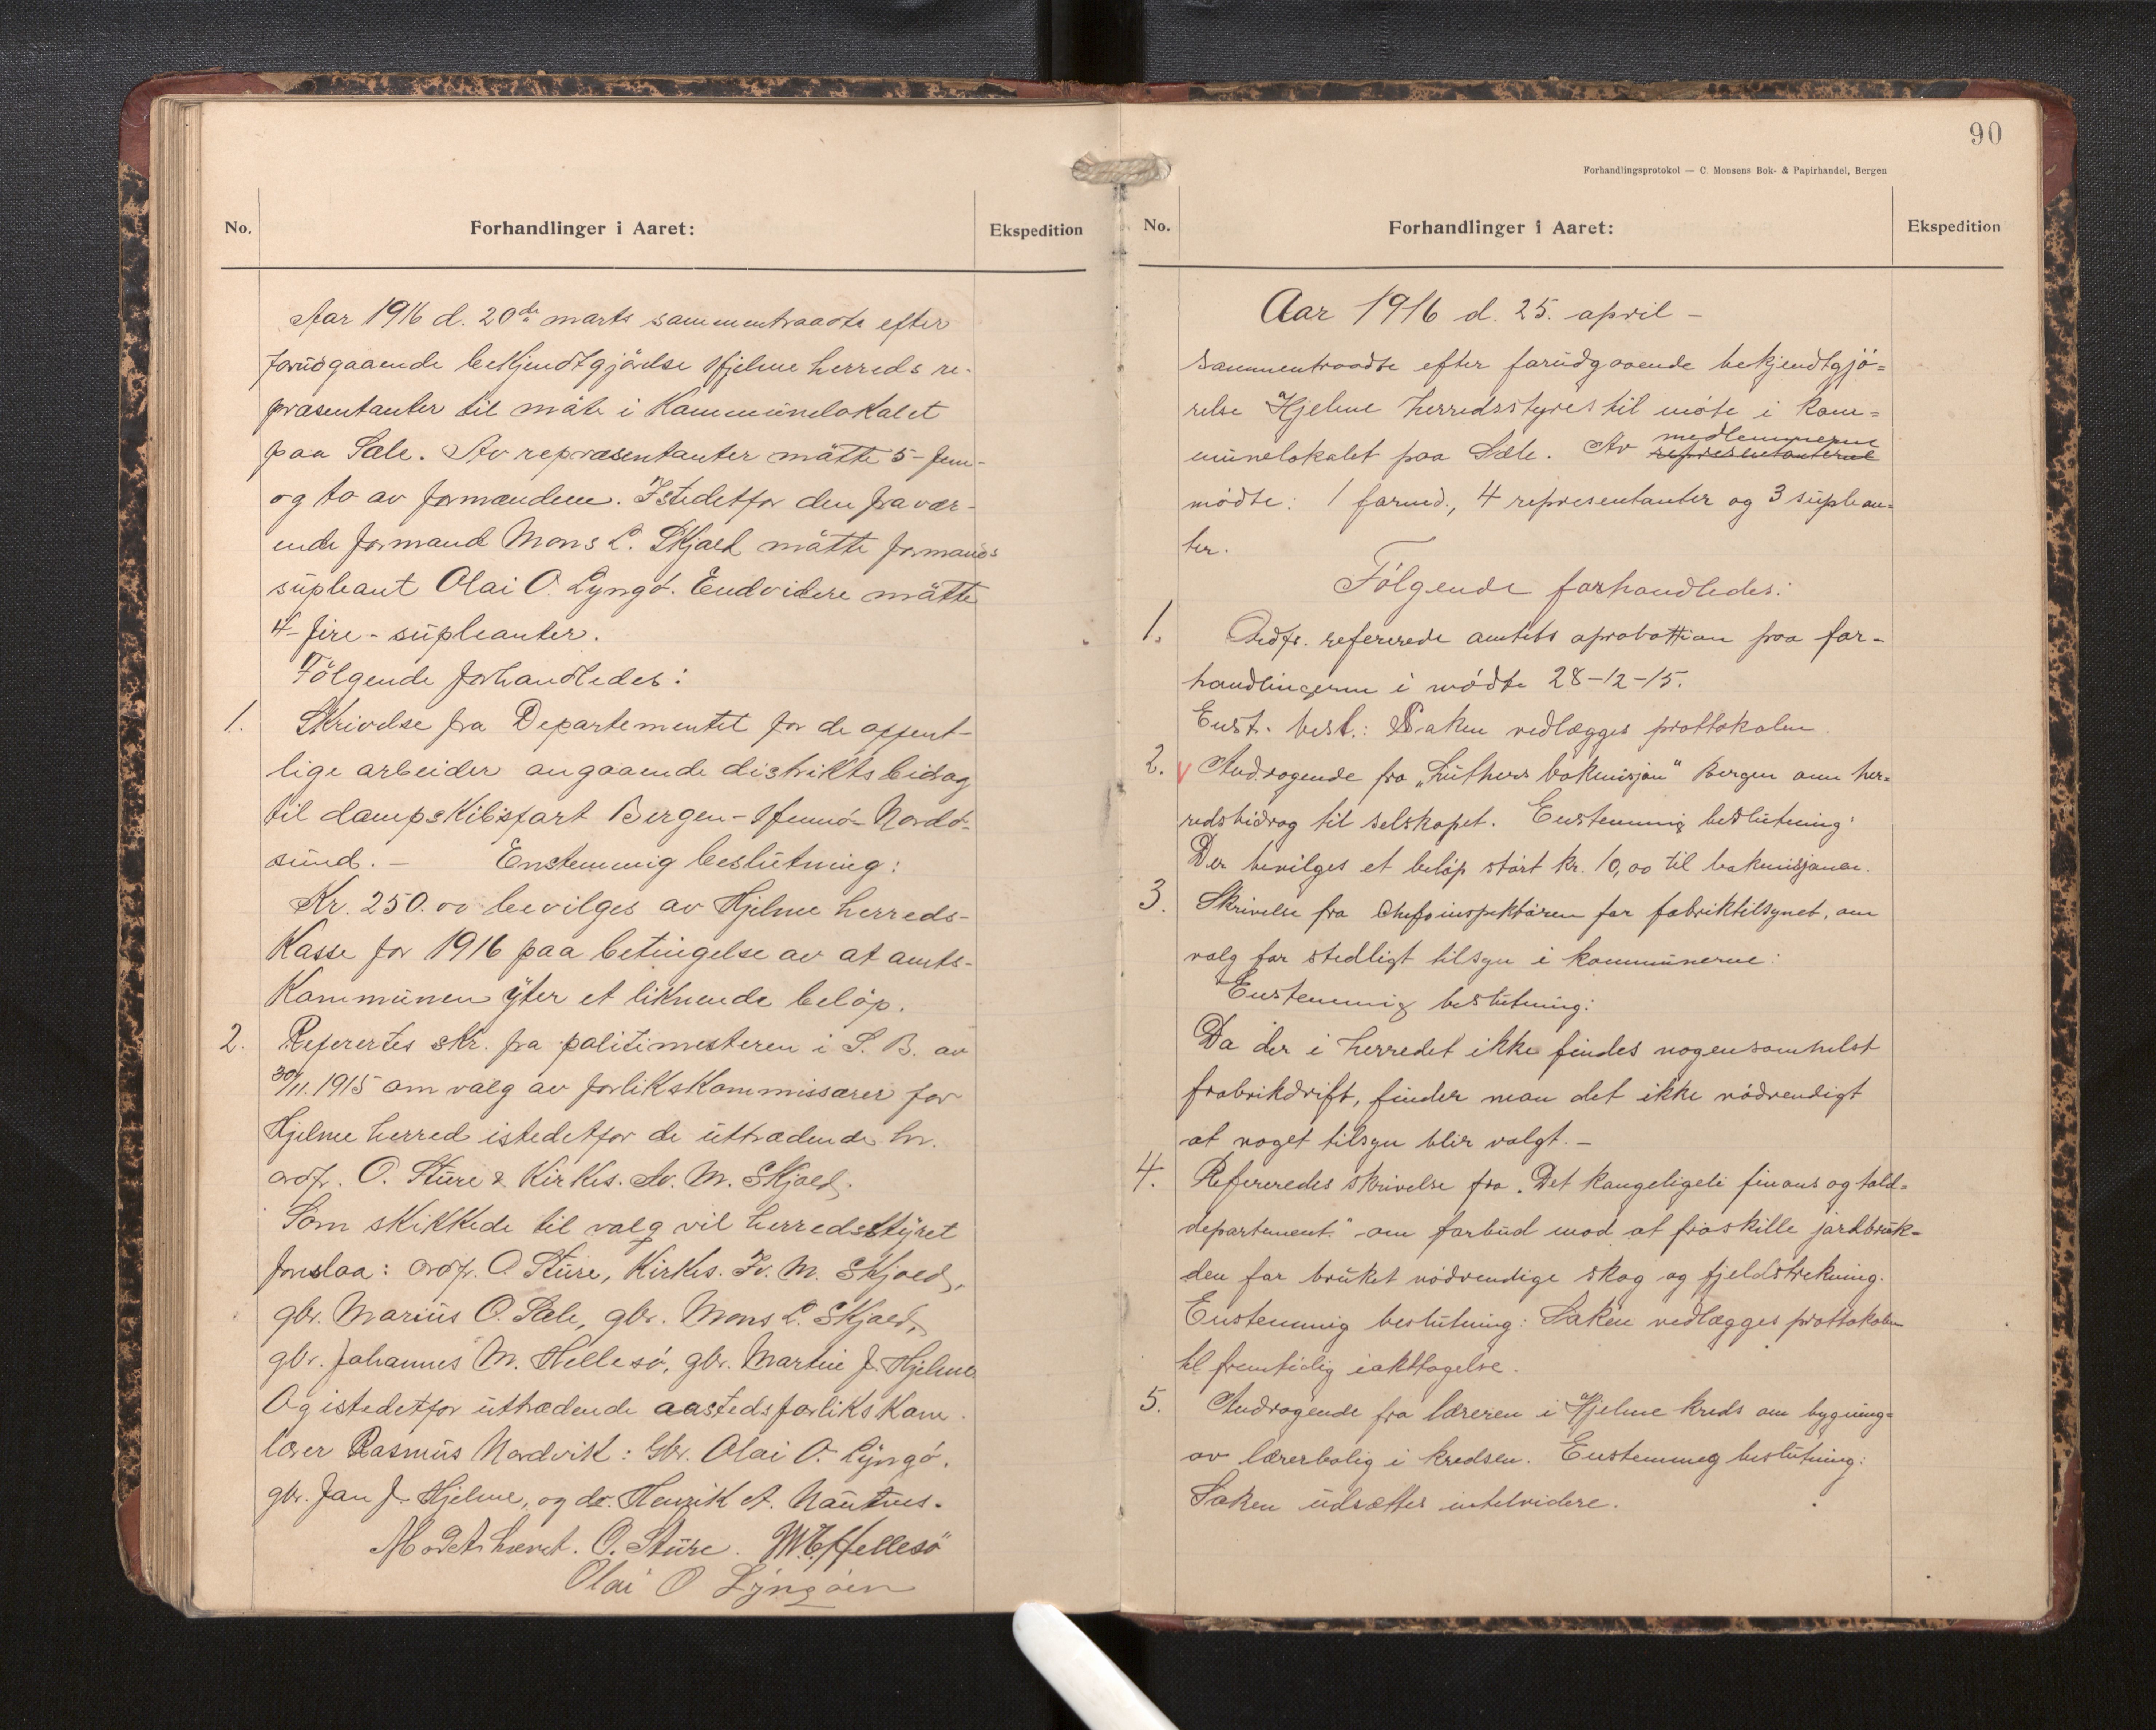 No.
Forhandlinger i Aaret:
Ekspedition
Aar 1916 d. 20de marts sammentraadte efter
forudgaaende bekjendtgjørelse Hjelme herreds re-
præsentanter til møte i Kommunelokalet
paa Sæle. Av repræsentanter møtte 5- fem-
og to av formændene. Istedetfor den fravær-
ende formand Mons L. Skjold møtte formands
supleant Olai O. Lyngø. Endvidere møtte
4- fire - supleanter.
Følgende forhandledes:
1. Skrivelse fra Departementet for de offent-
lige arbeider angaaende distriktsbidrag
til dampskibsfart Bergen - Hennø - Nordø-
sund. - Enstemmig beslutning:
Kr. 250.00 bevilges av Hjelme herreds-
Kasse for 1916 paa betingelse av at amts-
Kommunen yter et liknende beløp.
2. Referertes skr. fra politimesteren i S. B. av
30/11. 1915 om valg av forlikskommissærer for
Hjelme herred istedetfor de uttrædende hr.
ordf. O. Sture & Kirkes. Av. M. Skjold.
Som skikkede til valg vil herredsstyret
foreslaa: ordf. O. Sture, Kirkes. Iv. M. Skjold,
gbr. Marius O. Sæle, gbr. Mons L. Skjold,
gbr. Johannes M. Hellesø, gbr. Martin J. Hjelme
Og istedetfor uttrædende aastedsforlikskom.
lærer Rasmus Nordvik: Gbr. Olai O. Lyngø.
gbr. Jan J. Hjelme, og do. Henrik A. Nautnes.
Mødet hævet. O. Sture. M. E. Hellesö
Olai O Lyngøen
90
Forhandlingsprotokol — C. Monsens Bok- & Papirhandel, Bergen
No.
Forhandlinger i Aaret:
Ekspedition
Aar 1916 d. 25. april -
sammentraadte efter forudgaaende bekjendtgjø=
relse Hjelme herredsstyres til møte i kom=
munelokalet paa Sæle. Av representanterne medlemmerne
mødte: 1 formd., 4 representanter og 3 suplean=
ter.
Følgende forhandledes:
1. Ordfr. refererede amtets aprobattion paa for-
handlingerne i mødte 28-12-15.
Enst. besl.: Saken vedlægges prottokolen.
2. V Andragende fra „Luthers bokmisjon" Bergen om her=
redsbidrag til selskapet. Enstemmig beslutning:
Der bevilges et beløp stort kr. 10,00 til bokmisjonen.
3. Skrivelse fra Chefsinspektøren for fabriktilsynet, om
valg for stedligt tilsyn i kommunerne:
Enstemmig beslutning:
Da der i herredet ikke findes nogensomhelst
frabrikdrift, finder man det ikke nødvendigt
at noget tilsyn blir valgt. -
4. Refereredes skrivelse fra „Det kongeligeli finans og told=
departement." om forbud mod at fraskille jordbruk=
den for bruket nødvendige skog og fjeldstrekning.
Enstemmig beslutning: Saken vedlægges prottokolen
til fremtidig iakttagelse.
5. Andragende fra læreren i Hjelme kreds om bygning=
av lærerbolig i kredsen. Enstemmeg beslutning:
Saken udsættes intelvidere.